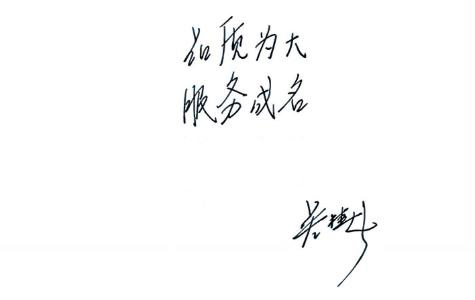 品质为大
服务成名